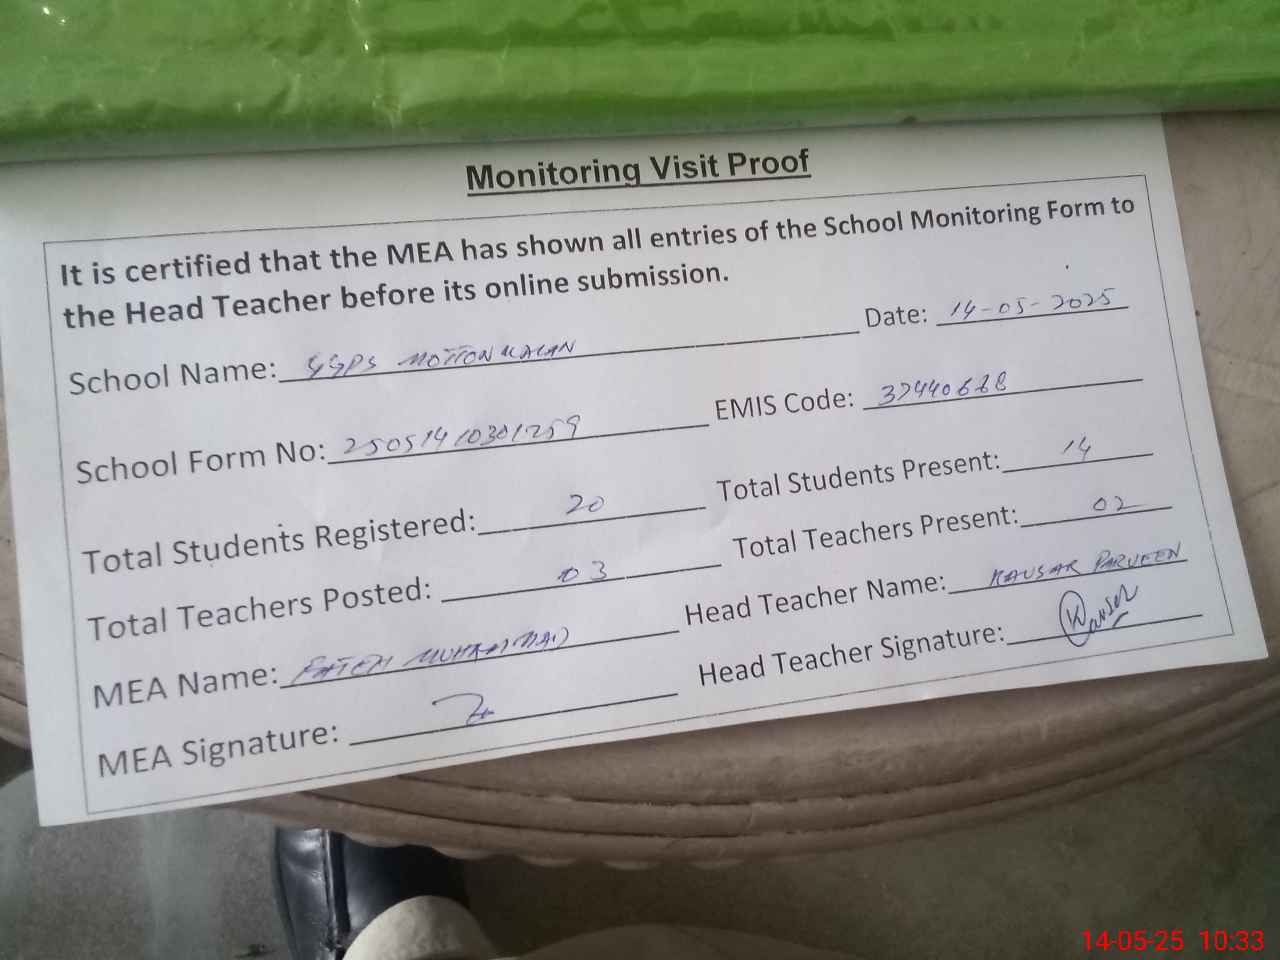 Monitoring Visit Proof
It is certified that the MEA has shown all entries of the School Monitoring Form to
the Head Teacher before its online submission.
School Name: GGPS MOTTON KALAN Date: 14-05-2025
School Form No: 25051410301259 EMIS Code: 37440688
Total Students Registered: 20 Total Students Present: 14
Total Teachers Posted: 03 Total Teachers Present: 02
MEA Name: MUHAMMAD Head Teacher Name: KAUSAR PARVEEN
MEA Signature: Head Teacher Signature: Kauser
14-05-25 10:33